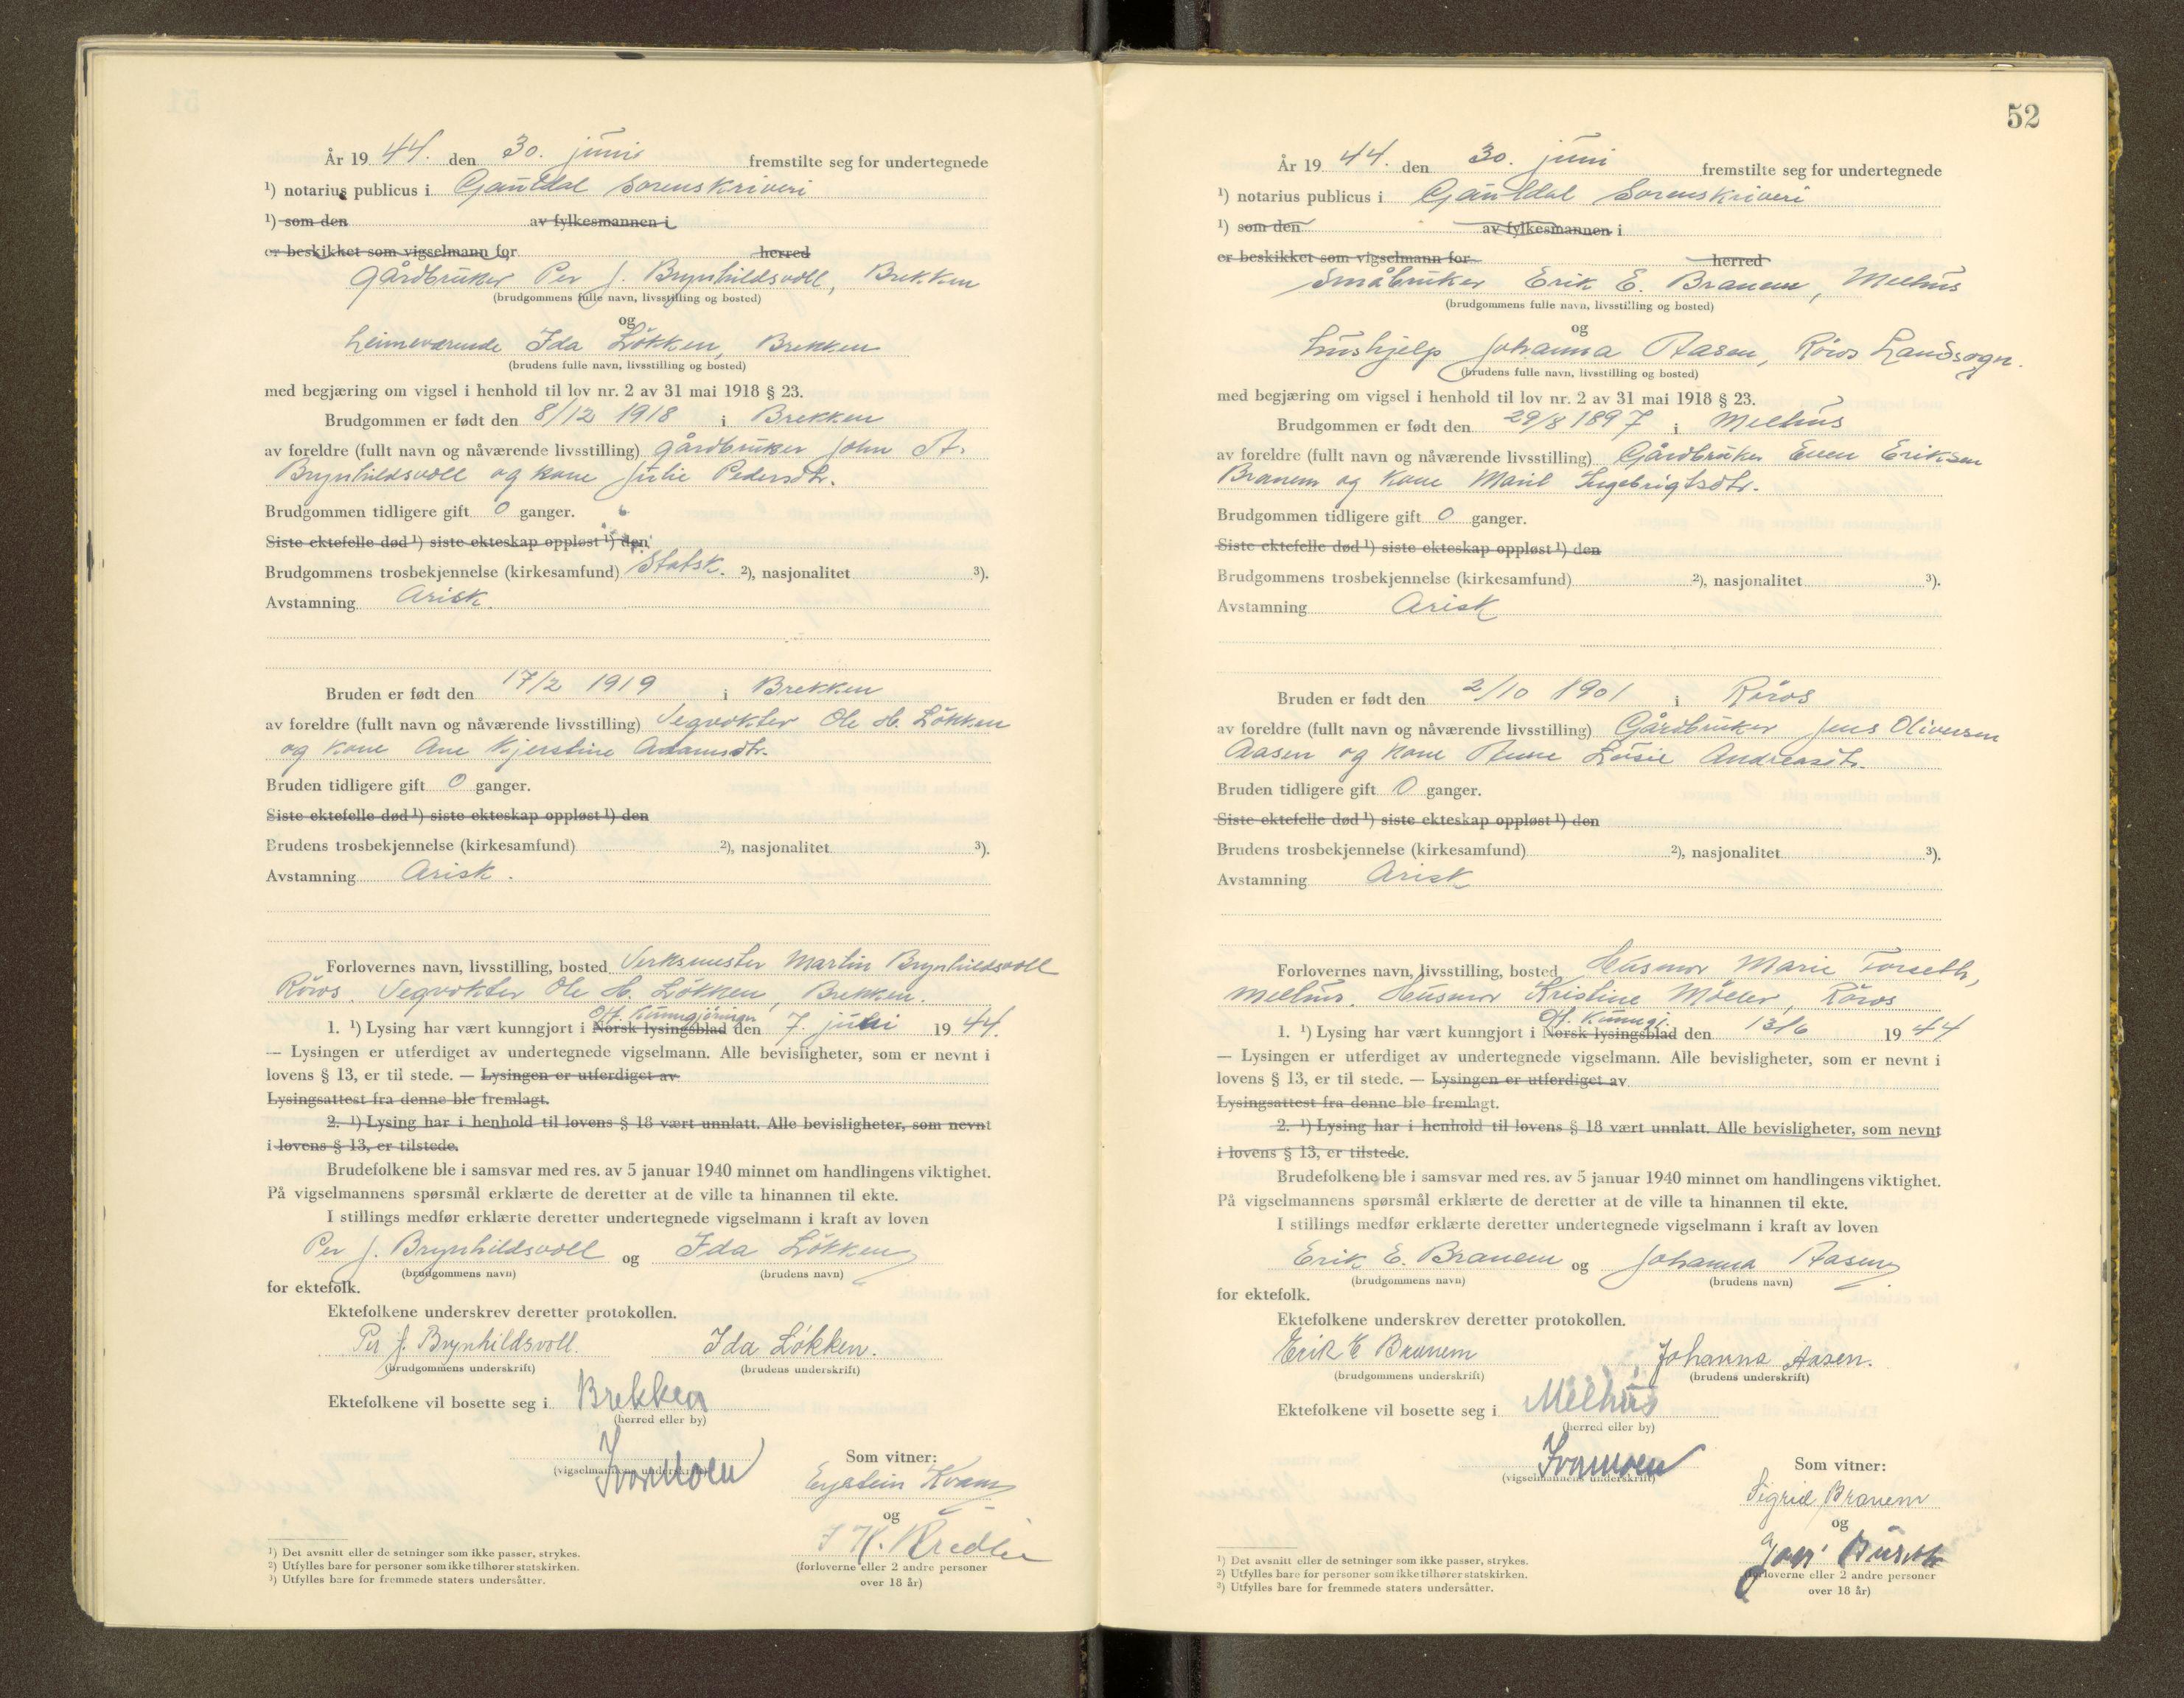 År 19 44. den 30. juni fremstilte seg for undertegnede
¹) notarius publicus i Gauldal Sorenskriveri
¹) som den av fylkesmannen i
er beskikket som vigselmann for herred
Gårdbruker Per J. Brynhildsvoll, Brekken
(brudgommens fulle navn, livsstilling og bosted)
og
heimeværende Ida Løkken, Brekken
(brudens fulle navn, livsstilling og bosted)
med begjæring om vigsel i henhold til lov nr. 2 av 31 mai 1918 § 23.
Brudgommen er født den 8/12 1918 i Brekken
av foreldre (fullt navn og nåværende livsstilling) gårdbruker John A.
Brynhildsvoll og kone Julie Pedersdtr.
Brudgommen tidligere gift 0 ganger.
Siste ektefelle død ¹) siste ekteskap oppløst ¹) den
Brudgommens trosbekjennelse (kirkesamfund) Statsk. ²), nasjonalitet ³).
Avstamning Arisk.
Bruden er født den 17/2 1919 i Brekken
av foreldre (fullt navn og nåværende livsstilling) Vegvokter Ole H. Løkken
og kone Ane Kjerstine Adamsdtr.
Bruden tidligere gift 0 ganger.
Siste ektefelle død ¹) siste ekteskap oppløst ¹) den
Brudens trosbekjennelse (kirkesamfund) ²), nasjonalitet ³).
Avstamning Arisk.
Forlovernes navn, livsstilling, bosted Verksmester Martin Brynhildsvoll
Röros. Vegvokter Ole H. Løkken, Brekken.
Off. Kunngjöringer
1. ¹) Lysing har vært kunngjort i Norsk lysingsblad den 7. juni 19 44.
— Lysingen er utferdiget av undertegnede vigselmann. Alle bevisligheter, som er nevnt i
lovens § 13, er til stede. — Lysingen er utferdiget av
Lysingsattest fra denne ble fremlagt.
2. ¹) Lysing har i henhold til lovens § 18 vært unnlatt. Alle bevisligheter, som nevnt
i lovens § 13, er tilstede.
Brudefolkene ble i samsvar med res. av 5 januar 1940 minnet om handlingens viktighet.
På vigselmannens spørsmål erklærte de deretter at de ville ta hinannen til ekte.
I stillings medfør erklærte deretter undertegnede vigselmann i kraft av loven
Per J. Brynhildsvoll og Ida Løkken
(brudgommens navn) (brudens navn)
for ektefolk.
Ektefolkene underskrev deretter protokollen.
Per J. Brynhildsvoll. Ida Løkken.
(brudgommens underskrift) (brudens underskrift)
Ektefolkene vil bosette seg i Brekken
(herred eller by)
Som vitner:
(vigselmannens underskrift)
Eystein Kvam
og
(forloverne eller 2 andre personer
over 18 år)
¹) Det avsnitt eller de setninger som ikke passer, strykes.
²) Utfylles bare for personer som ikke tilhører statskirken.
³) Utfylles bare for fremmede staters undersåtter.
52
År 19 44. den 30. juni fremstilte seg for undertegnede
¹) notarius publicus i Gauldal Sorenskriveri
¹) som den av fylkesmannen i
er beskikket som vigselmann for herred
Småbruker Erik E. Branem, Melhus
(brudgommens fulle navn, livsstilling og bosted)
og
hushjelp Johanna Aasen, Röros Landsogn.
(brudens fulle navn, livsstilling og bosted)
med begjæring om vigsel i henhold til lov nr. 2 av 31 mai 1918 § 23.
Brudgommen er født den 29/8 1897 i Melhus
av foreldre (fullt navn og nåværende livsstilling) Gårdbruker Even Eriksen
Branem og kone Marit Ingebrigtsdtr.
Brudgommen tidligere gift 0 ganger.
Siste ektefelle død ¹) siste ekteskap oppløst ¹) den
Brudgommens trosbekjennelse (kirkesamfund) ²), nasjonalitet ³).
Avstamning Arisk
Bruden er født den 2/10 1901 i Röros
av foreldre (fullt navn og nåværende livsstilling) Gårdbruker Jens Oliversen
Aasen og kone Anne Lusie Andreasdtr.
Bruden tidligere gift 0 ganger.
Siste ektefelle død ¹) siste ekteskap oppløst ¹) den
Brudens trosbekjennelse (kirkesamfund) ²), nasjonalitet ³).
Avstamning Arisk
Forlovernes navn, livsstilling, bosted Husmor Marie Forseth,
Melhus. Husmor Kristine Möller, Röros
Off. Kunngj.
1. ¹) Lysing har vært kunngjort i Norsk lysingsblad den 13/6 19 44
— Lysingen er utferdiget av undertegnede vigselmann. Alle bevisligheter, som er nevnt i
lovens § 13, er til stede. — Lysingen er utferdiget av
Lysingsattest fra denne ble fremlagt.
2. ¹) Lysing har i henhold til lovens § 18 vært unnlatt. Alle bevisligheter, som nevnt
i lovens § 13, er tilstede.
Brudefolkene ble i samsvar med res. av 5 januar 1940 minnet om handlingens viktighet.
På vigselmannens spørsmål erklærte de deretter at de ville ta hinannen til ekte.
I stillings medfør erklærte deretter undertegnede vigselmann i kraft av loven
Erik E. Branem og Johanna Aasen
(brudgommens navn) (brudens navn)
for ektefolk.
Ektefolkene underskrev deretter protokollen.
Erik E Branem Johanna Aasen.
(brudgommens underskrift) (brudens underskrift)
Ektefolkene vil bosette seg i Melhus
(herred eller by)
Som vitner:
(vigselmannens underskrift)
Sigrid Branem
og
(forloverne eller 2 andre personer
over 18 år)
¹) Det avsnitt eller de setninger som ikke passer, strykes.
²) Utfylles bare for personer som ikke tilhører statskirken.
³) Utfylles bare for fremmede staters undersåtter.